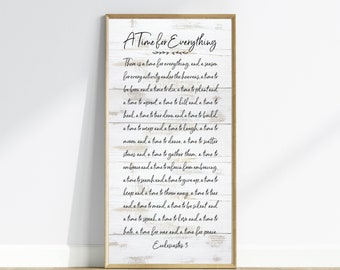 A Time for Everything
There is a time for everything, and a season
for every activity under the heavens, a time to
be born and a time to die, a time to plant and
a time to uproot, a time to kill and a time to
heal, a time to tear down and a time to build,
a time to weep and a time to laugh, a time to
mourn and a time to dance, a time to scatter
stones and a time to gather them, a time to
embrace and a time to refrain from embracing,
a time to search and a time to give up, a time to
keep and a time to throw away, a time to tear
and a time to mend, a time to be silent and a
time to speak, a time to love and a time to
hate, a time for war and a time for peace.
Ecclesiastes 3